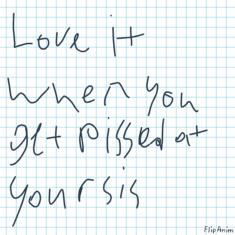 Love it
when you
get pissed at
your sis
FlipAnim